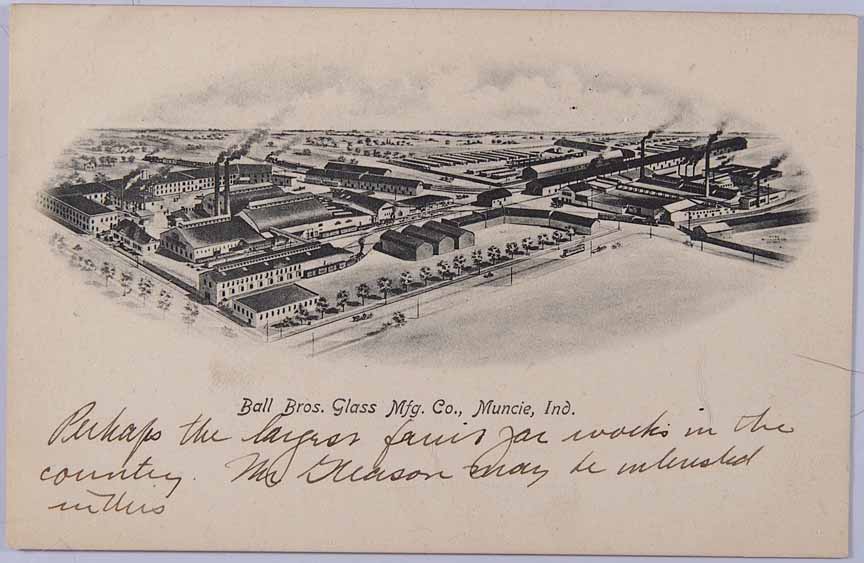 Ball Bros. Glass Mfg. Co., Muncie, Ind.
Perhaps the largest fruit jar works in the
country. Mr Gleason may be interested
in this